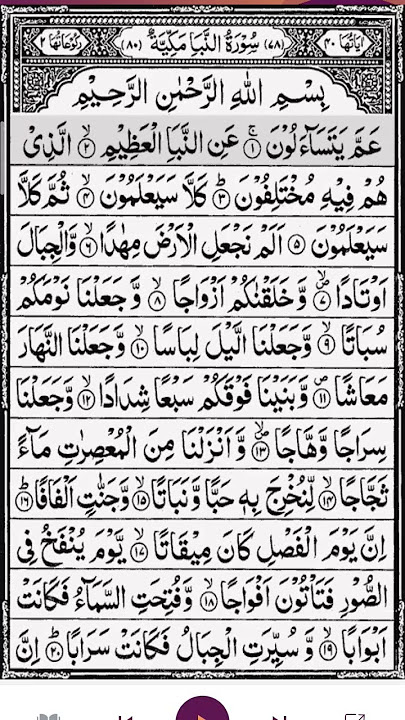 اٰیَاتُهَا ٤٠ (٧٨) سُوْرَةُ النَّبَاِ مَكِّیَّةٌ (٨٠) رُكُوْعَاتُهَا ٢
بِسْمِ اللّٰهِ الرَّحْمٰنِ الرَّحِیْمِ
عَمَّ یَتَسَآءَلُوْنَ ۚ‏﴿۱﴾ عَنِ النَّبَاِ الْعَظِیْمِ ۙ‏﴿۲﴾ الَّذِیْ
هُمْ فِیْهِ مُخْتَلِفُوْنَ ؕ‏﴿۳﴾ كَلَّا سَیَعْلَمُوْنَ ۙ‏﴿۴﴾ ثُمَّ كَلَّا
سَیَعْلَمُوْنَ ﴿۵﴾ اَلَمْ نَجْعَلِ الْاَرْضَ مِهٰدًا ۙ‏﴿۶﴾ وَّالْجِبَالَ
اَوْتَادًا ۪ۙ‏﴿۷﴾ وَّخَلَقْنٰكُمْ اَزْوَاجًا ۙ‏﴿۸﴾ وَّجَعَلْنَا نَوْمَكُمْ
سُبَاتًا ۙ‏﴿۹﴾ وَّجَعَلْنَا الَّیْلَ لِبَاسًا ۙ‏﴿۱۰﴾ وَّجَعَلْنَا النَّهَارَ
مَعَاشًا ۪‏﴿۱۱﴾ وَّبَنَیْنَا فَوْقَكُمْ سَبْعًا شِدَادًا ۙ‏﴿۱۲﴾ وَّجَعَلْنَا
سِرَاجًا وَّهَّاجًا ۪ۙ‏﴿۱۳﴾ وَّاَنْزَلْنَا مِنَ الْمُعْصِرٰتِ مَآءً
ثَجَّاجًا ۙ‏﴿۱۴﴾ لِّنُخْرِجَ بِهٖ حَبًّا وَّنَبَاتًا ۙ‏﴿۱۵﴾ وَّجَنّٰتٍ اَلْفَافًا ؕ‏﴿۱۶﴾
اِنَّ یَوْمَ الْفَصْلِ كَانَ مِیْقَاتًا ۙ‏﴿۱۷﴾ یَّوْمَ یُنْفَخُ فِی
الصُّوْرِ فَتَاْتُوْنَ اَفْوَاجًا ۙ‏﴿۱۸﴾ وَّفُتِحَتِ السَّمَآءُ فَكَانَتْ
اَبْوَابًا ۙ‏﴿۱۹﴾ وَّسُیِّرَتِ الْجِبَالُ فَكَانَتْ سَرَابًا ؕ‏﴿۲۰﴾ اِنَّ